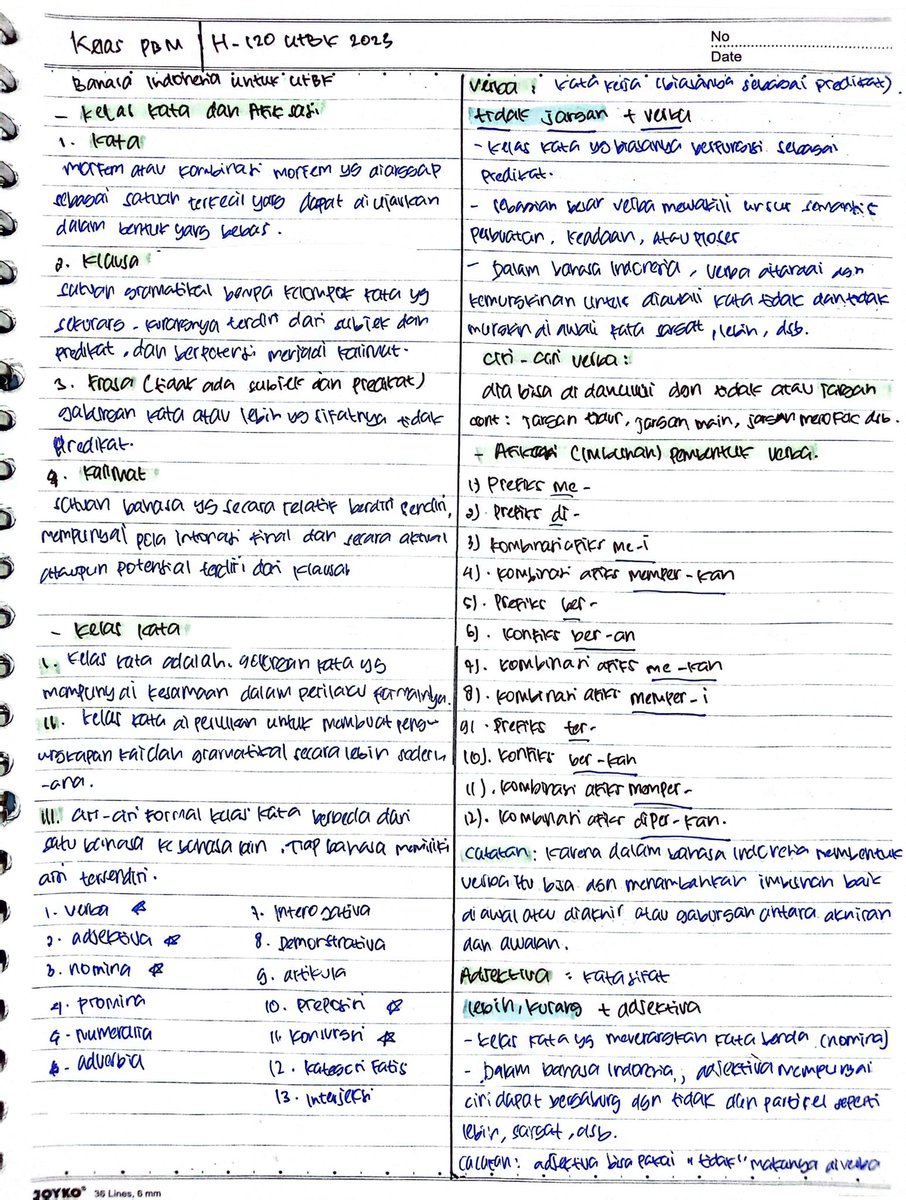 Kelas PBM | H-120 UTBK 2023
No
Date
Bahasa Indonesia untuk UTBK
- Kelas Kata dan Afiksasi
1. Kata
Morfem atau kombinasi morfem yg dianggap
sebagai satuan terkecil yang dapat diujarkan
dalam bentuk yang bebas.
2. Klausa
Satuan gramatikal berupa kelompok kata yg
sekurang-kurangnya terdiri dari subjek dan
predikat, dan berpotensi menjadi kalimat.
3. Frasa (tidak ada subjek dan predikat)
gabungan kata atau lebih yg sifatnya tidak
predikat.
4. Kalimat
Satuan bahasa yg secara relatif berdiri sendiri,
mempunyai pola intonasi final dan secara aktual
ataupun potensial terdiri dari klausa.
- Kelas Kata
I. Kelas kata adalah golongan kata yg
mempunyai kesamaan dalam perilaku formalnya.
II. Kelas kata diperlukan untuk membuat peng-
ungkapan kaidah gramatikal secara lebih sederh
-ana.
III. Ciri-ciri formal kelas kata berbeda dari
satu bahasa ke bahasa lain. Tiap bahasa memiliki
ciri tersendiri.
1. Verba ☆
2. adjektiva ☆
3. nomina ☆
4. promina
5. numeralia
6. adverbia
7. Interogativa
8. Demonstrativa
9. artikula
10. Preposisi ☆
11. Konjungsi ☆
12. Kategori Fatis
13. Interjeksi
Verba : Kata kerja (biasanya sebagai predikat).
tidak jangan + verba
- Kelas kata yg biasanya berfungsi sebagai
predikat.
- Sebagian besar verba mewakili unsur semantis
perbuatan, keadaan, atau proses
- Dalam bahasa Indonesia, verba ditandai dgn
kemungkinan untuk diawali kata tidak dan tidak
mungkin diawali kata sangat, lebih, dsb.
Ciri-ciri verba :
dia bisa didahului dgn tidak atau jangan
cont : jangan tidur, jangan main, jangan merokok dsb.
+ Afiksasi (imbuhan) pembentuk verba.
1) Prefiks me-
2) Prefiks di-
3) Kombinasi afiks me-i
4). Kombinasi afiks memper-kan
5). Prefiks ber-
6). Konfiks ber-an
7). Kombinasi afiks me-kan
8). Kombinasi afiks memper-i
9). Prefiks ter-
10). Konfiks ber-kan
11). Kombinasi afiks memper-
12). Kombinasi afiks diper-kan.
Catatan : Karena dalam bahasa Indonesia membentuk
verba itu bisa dgn menambahkan imbuhan baik
di awal atau diakhir atau gabungan antara akhiran
dan awalan.
Adjektiva : Kata sifat
lebih, kurang + adjektiva
- Kelas kata yg menerangkan kata benda (nomina)
- Dalam bahasa Indonesia, adjektiva mempunyai
ciri dapat bergabung dgn tidak dan partikel seperti
lebih, sangat, dsb.
Catatan : adjektiva bisa pakai "tidak" makanya di verba
JOYKO® 36 Lines, 6 mm